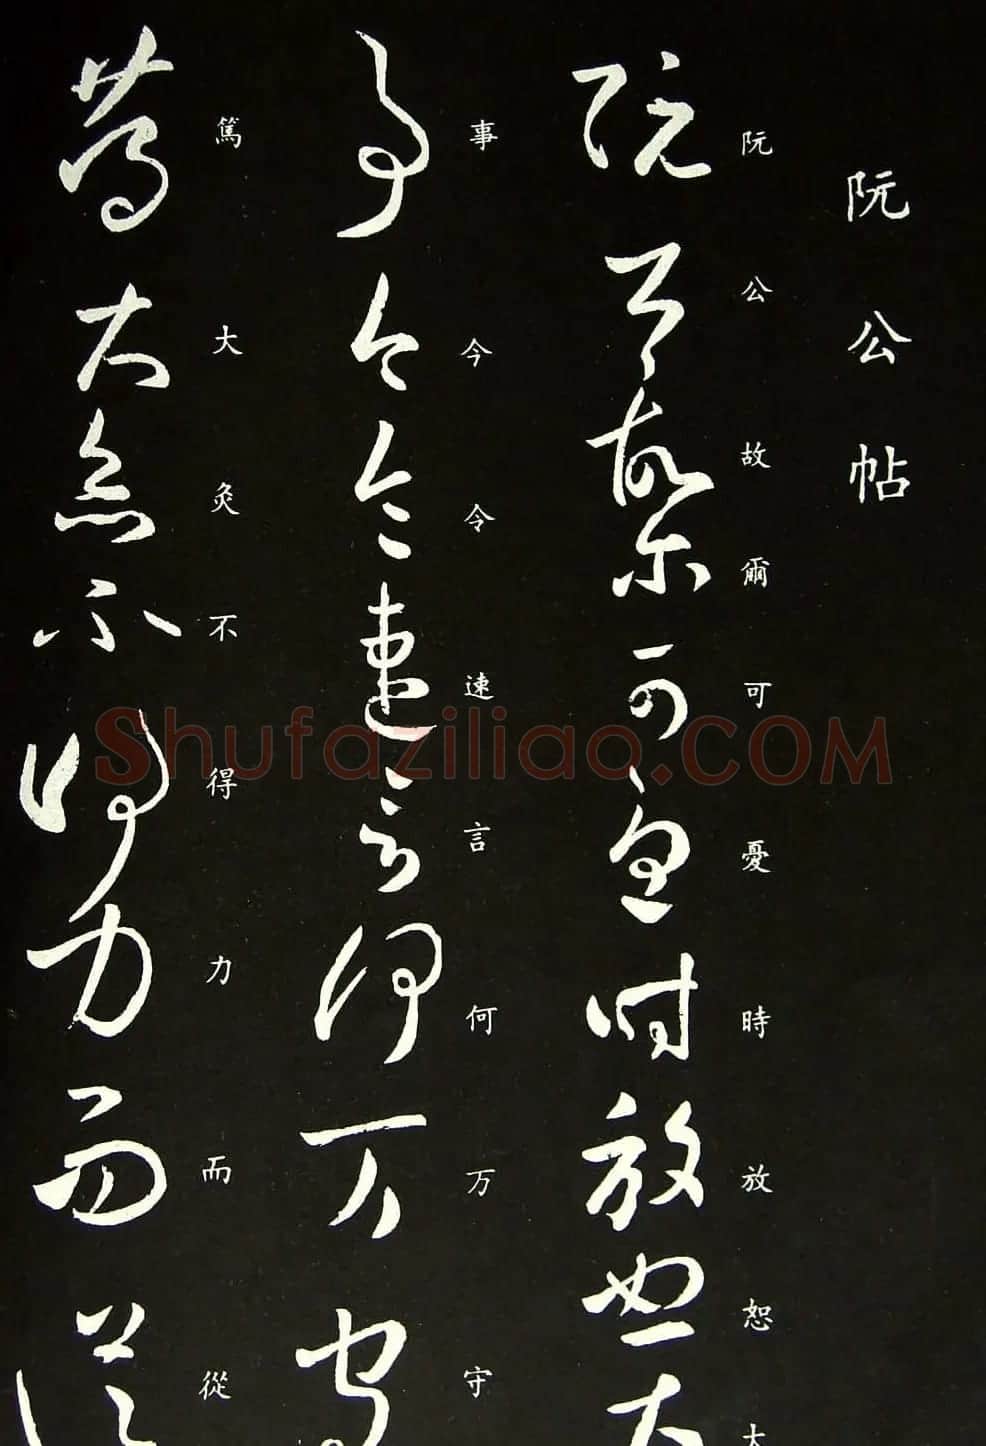 阮公帖
阮公故爾可憂時放恕大
事今令速言何万守
篤大灸不得力而從
Shufaziliao.COM